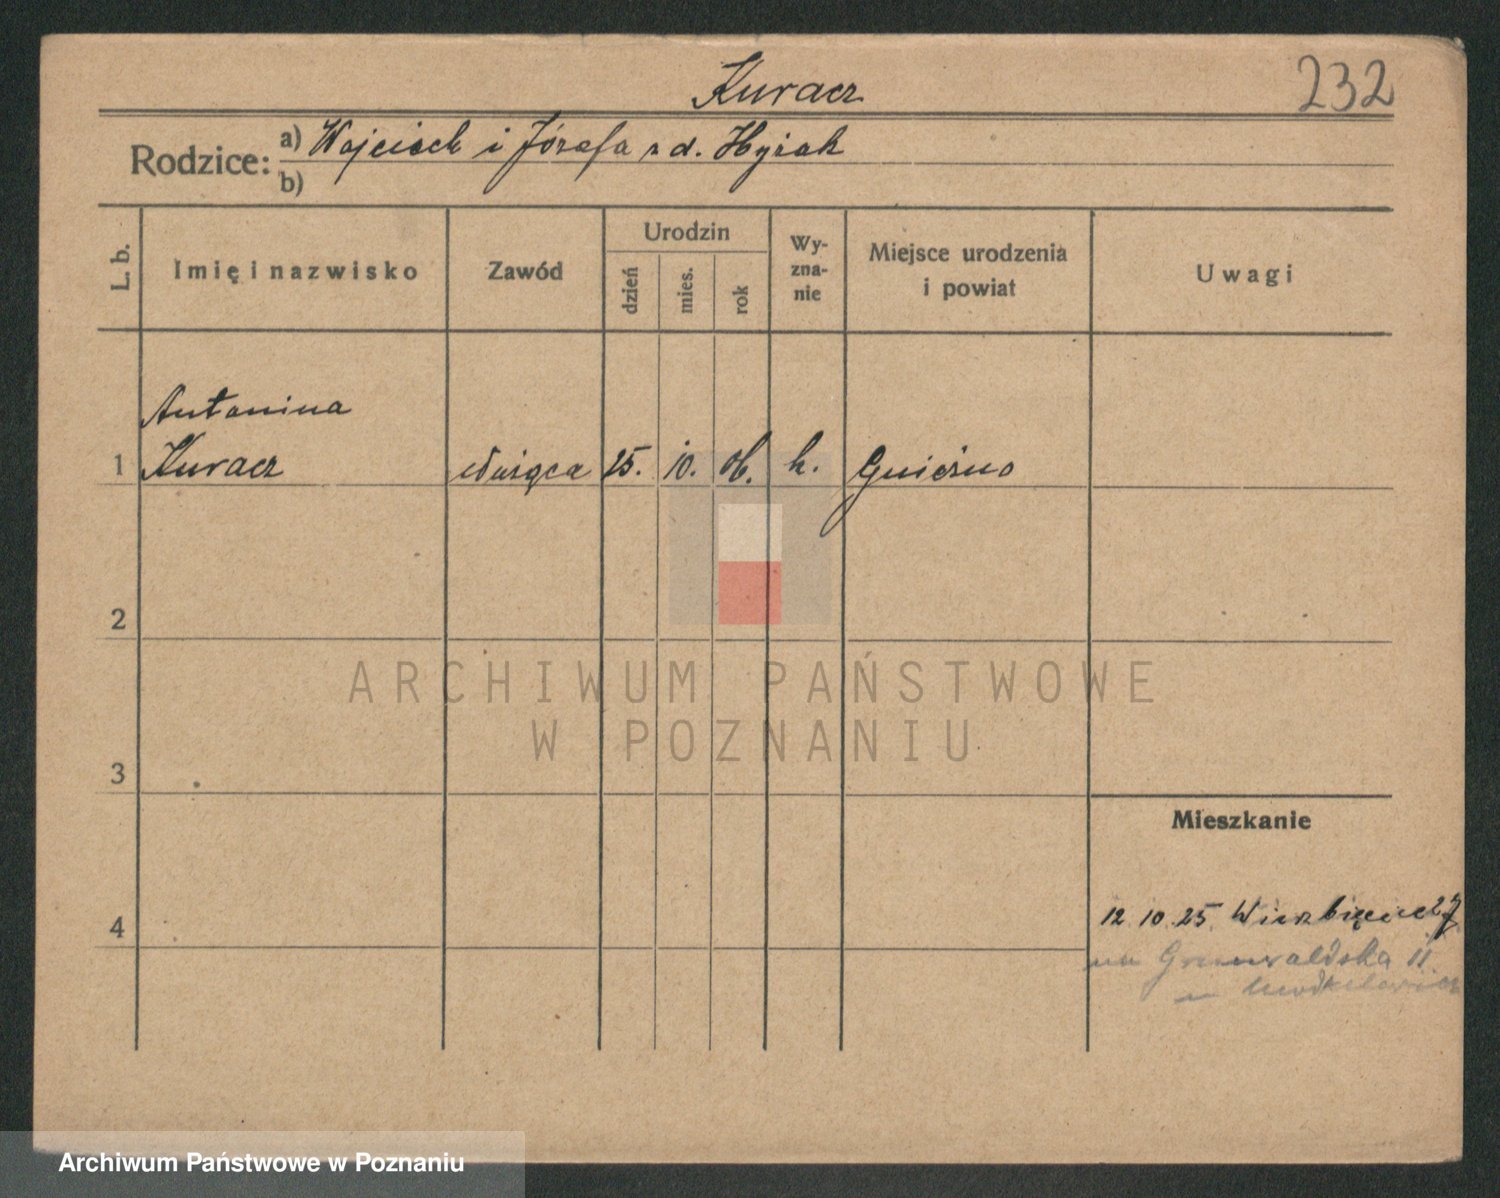 Kuracz
232
Rodzice:
a) Wojciech i Józefa z d. Hyżak
b)
L. b.
Imię i nazwisko
Zawód
Urodzin
dzień
mies.
rok
Wy-
zna-
nie
Miejsce urodzenia
i powiat
Uwagi
Antonina
1 Kuracz służąca 25. 10. 06. k. Gniezno
2
3
4
Mieszkanie
12 10 25 Wierzbięcice 27
na Grunwaldzka 11
ARCHIWUM PAŃSTWOWE
W POZNANIU
Archiwum Państwowe w Poznaniu